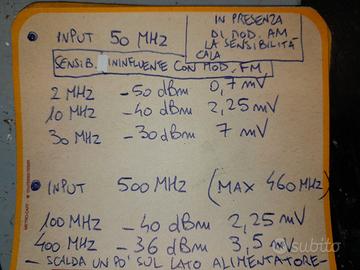 INPUT 50 MHz
IN PRESENZA
DI MOD. AM
LA SENSIBILITÀ
CALA
SENSIB. ININFLUENTE CON MOD. FM
2 MHz -50 dBm 0,7 mV
10 MHz -40 dBm 2,25 mV
30 MHz -30 dBm 7 mV
INPUT 500 MHz (MAX 460 MHz)
100 MHz -40 dBm 2,25 mV
400 MHz -36 dBm 3,5 mV
- SCALDA UN PO' SUL LATO ALIMENTATORE-
subito